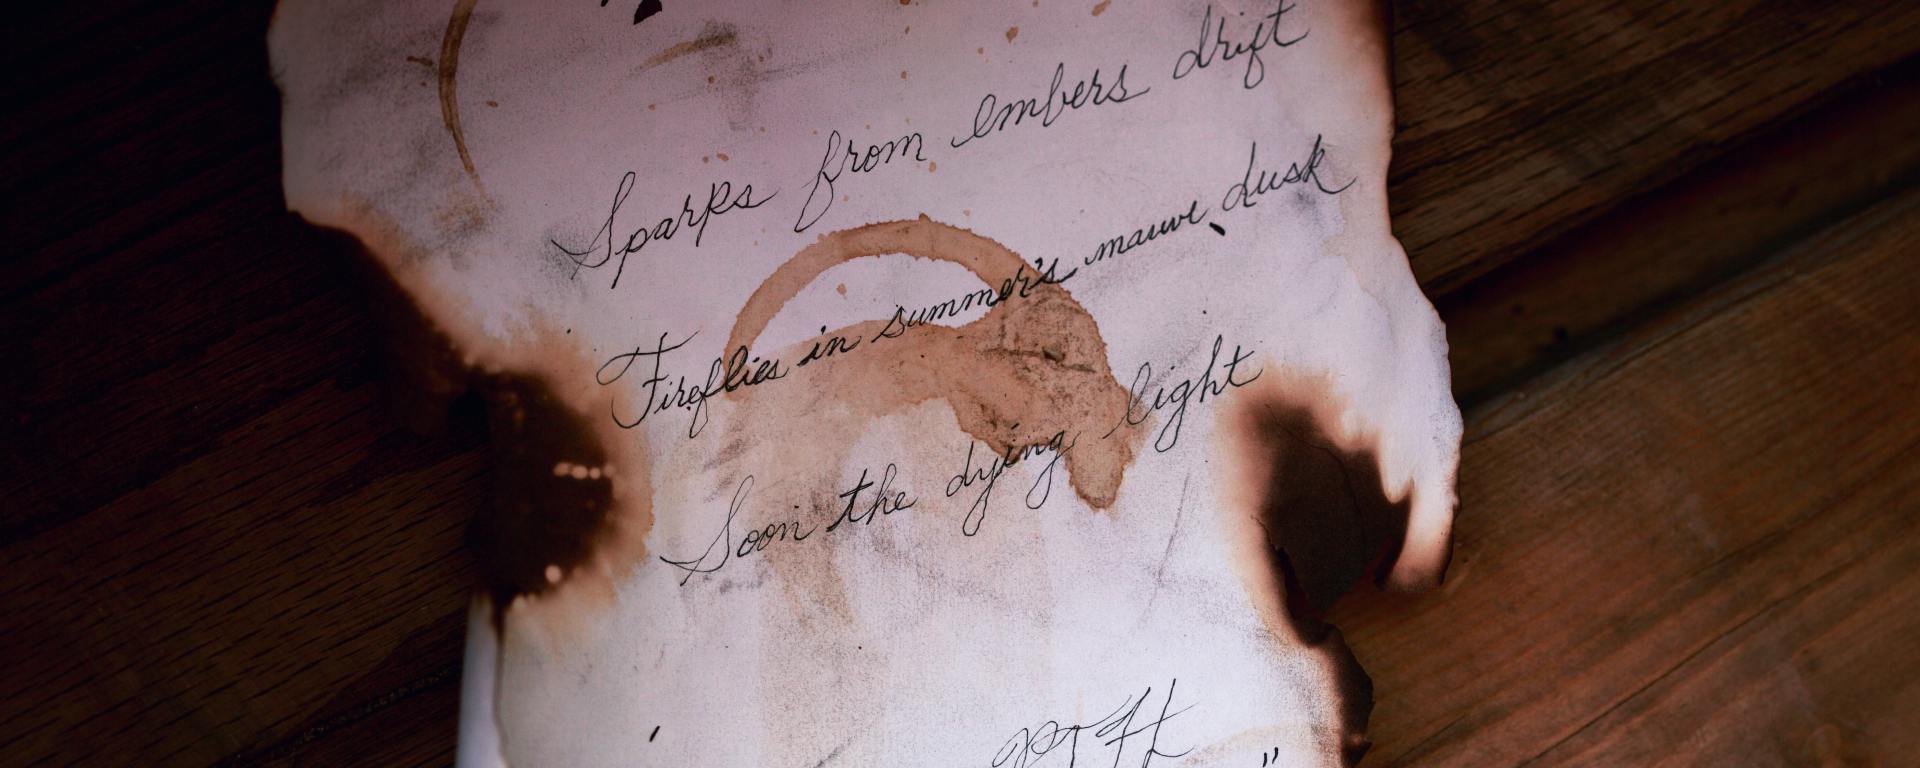 Sparks from embers drift
Fireflies in summer's mauve dusk
Soon the dying light